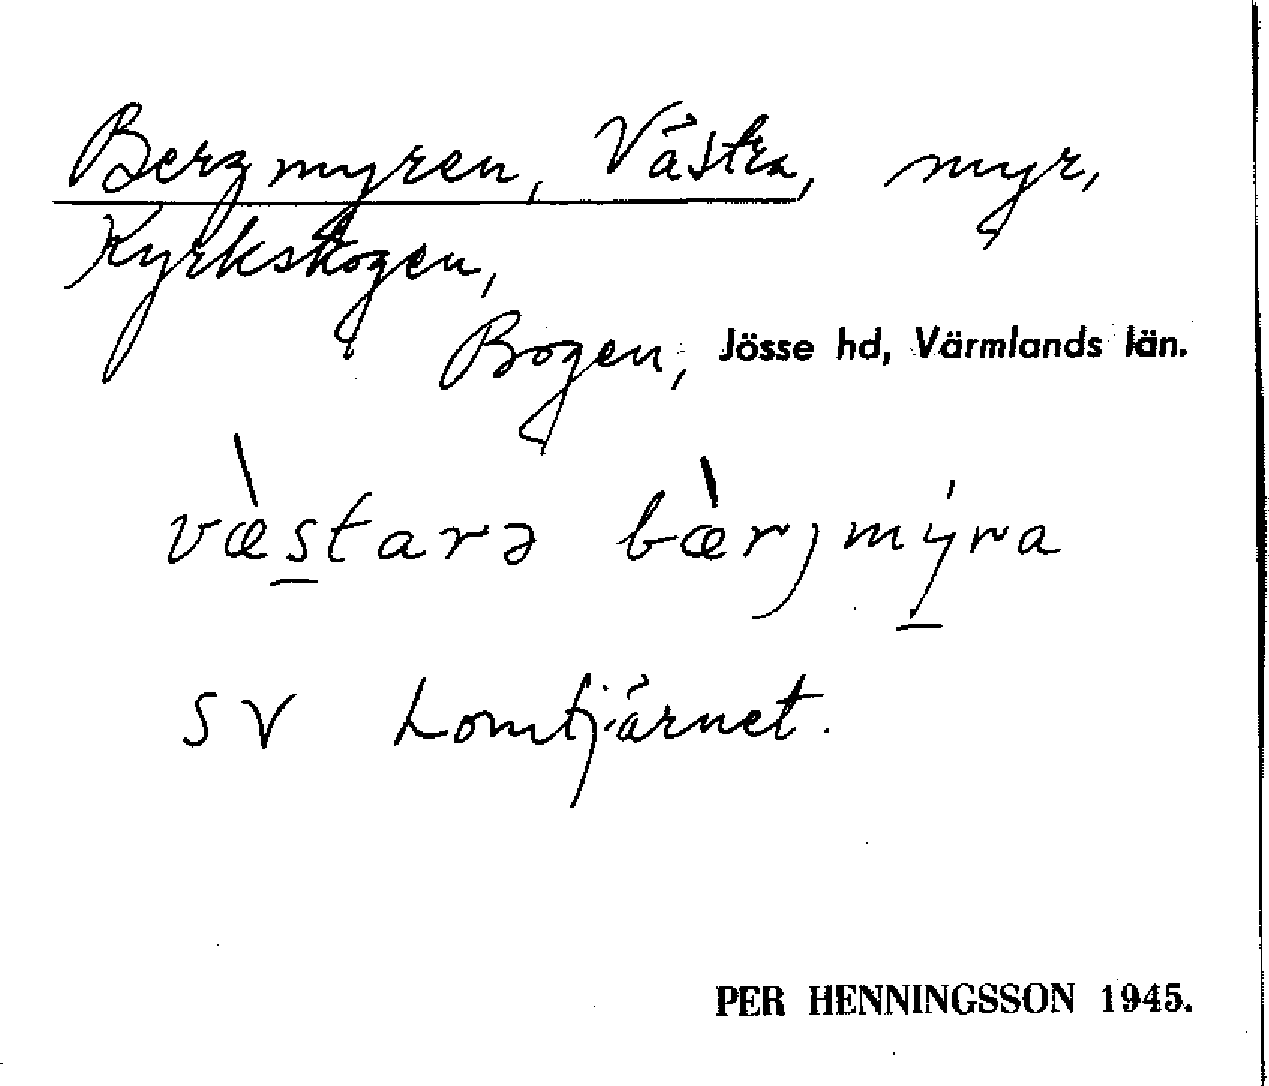 Bergmyren, Västra, myr,
Kyrkskogen,
Bogen, Jösse hd, Värmlands län.
væ̀starə bæ̀rjmýra
SV Lomtjärnet.
PER HENNINGSSON 1945.